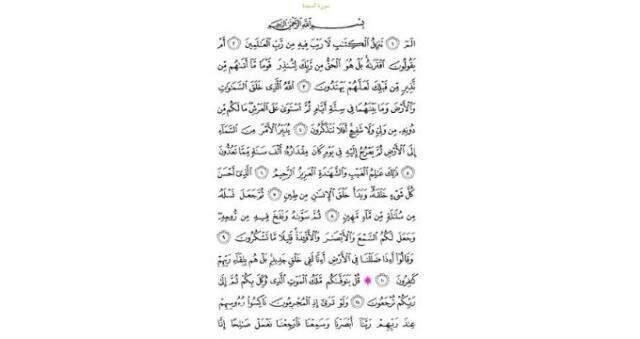 سورة السجدة
بِسْمِ ٱللَّهِ ٱلرَّحْمَٰنِ ٱلرَّحِيمِ
الٓمٓ ١ تَنزِيلُ ٱلْكِتَٰبِ لَا رَيْبَ فِيهِ مِن رَّبِّ ٱلْعَٰلَمِينَ ٢ أَمْ
يَقُولُونَ ٱفْتَرَىٰهُ بَلْ هُوَ ٱلْحَقُّ مِن رَّبِّكَ لِتُنذِرَ قَوْمًا مَّآ أَتَىٰهُم مِّن
نَّذِيرٍ مِّن قَبْلِكَ لَعَلَّهُمْ يَهْتَدُونَ ٣ ٱللَّهُ ٱلَّذِى خَلَقَ ٱلسَّمَٰوَٰتِ
وَٱلْأَرْضَ وَمَا بَيْنَهُمَا فِى سِتَّةِ أَيَّامٍ ثُمَّ ٱسْتَوَىٰ عَلَى ٱلْعَرْشِ مَا لَكُم مِّن
دُونِهِۦ مِن وَلِىٍّ وَلَا شَفِيعٍ أَفَلَا تَتَذَكَّرُونَ ٤ يُدَبِّرُ ٱلْأَمْرَ مِنَ ٱلسَّمَآءِ
إِلَى ٱلْأَرْضِ ثُمَّ يَعْرُجُ إِلَيْهِ فِى يَوْمٍ كَانَ مِقْدَارُهُۥٓ أَلْفَ سَنَةٍ مِّمَّا تَعُدُّونَ
٥ ذَٰلِكَ عَٰلِمُ ٱلْغَيْبِ وَٱلشَّهَٰدَةِ ٱلْعَزِيزُ ٱلرَّحِيمُ ٦ ٱلَّذِىٓ أَحْسَنَ
كُلَّ شَىْءٍ خَلَقَهُۥ وَبَدَأَ خَلْقَ ٱلْإِنسَٰنِ مِن طِينٍ ٧ ثُمَّ جَعَلَ نَسْلَهُۥ
مِن سُلَٰلَةٍ مِّن مَّآءٍ مَّهِينٍ ٨ ثُمَّ سَوَّىٰهُ وَنَفَخَ فِيهِ مِن رُّوحِهِۦ
وَجَعَلَ لَكُمُ ٱلسَّمْعَ وَٱلْأَبْصَٰرَ وَٱلْأَفْـِٔدَةَ قَلِيلًا مَّا تَشْكُرُونَ ٩
وَقَالُوٓا۟ أَءِذَا ضَلَلْنَا فِى ٱلْأَرْضِ أَءِنَّا لَفِى خَلْقٍ جَدِيدٍۭ بَلْ هُم بِلِقَآءِ رَبِّهِمْ
كَٰفِرُونَ ١٠ قُلْ يَتَوَفَّىٰكُم مَّلَكُ ٱلْمَوْتِ ٱلَّذِى وُكِّلَ بِكُمْ ثُمَّ إِلَىٰ
رَبِّكُمْ تُرْجَعُونَ ١١ وَلَوْ تَرَىٰٓ إِذِ ٱلْمُجْرِمُونَ نَاكِسُوا۟ رُءُوسِهِمْ
عِندَ رَبِّهِمْ رَبَّنَآ أَبْصَرْنَا وَسَمِعْنَا فَٱرْجِعْنَا نَعْمَلْ صَٰلِحًا إِنَّا